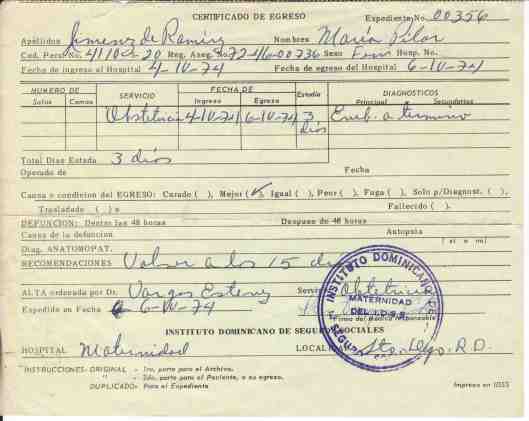 CERTIFICADO DE EGRESO
Expediente No. 00356
Apellidos Jimenez de Ramirez Nombres Maria Pilar
Ced. Pers. No. Reg. Aseg. No. 72-46-00736 Sexo Fem Hosp. No.
Fecha de ingreso al Hospital 4-IV-74 Fecha de egreso del Hospital 6-IV-74
NUMERO DE SERVICIO FECHA DE Estadía DIAGNOSTICOS
Salas Camas Ingreso Egreso Principal Secundarios
Obstetricia 4-IV-74 6-IV-74 3 días Emb. a término
Total Días Estada 3 días
Operado de Fecha
Causa o condicion del EGRESO: Curado ( ), Mejor (✓), Igual ( ), Peor ( ), Fuga ( ), Solo p/Diagnost. ( ),
Trasladado ( ) a Fallecido ( ).
DEFUNCION: Dentro las 48 horas Despues de 48 horas
Causa de la defuncion Autopsia
(si o no)
Diag. ANATOMOPAT.
RECOMENDACIONES Volver a los 15 días
ALTA ordenada por Dr. Vargas Servicio Obstetricia
Expedido en Fecha 6-IV-74
Firma del Medico Responsable
INSTITUTO DOMINICANO DE SEGUROS SOCIALES
MATERNIDAD
DEL I.D.S.S.
INSTITUTO DOMINICANO DE SEGUROS SOCIALES
HOSPITAL Maternidad LOCALIDAD Sto. Dgo. R.D.
INSTRUCCIONES: ORIGINAL - 1ro. parte para el Archivo.
" - 2do. parte para el Paciente, a su egreso.
DUPLICADO- Para el Expediente
Impreso en IDSS